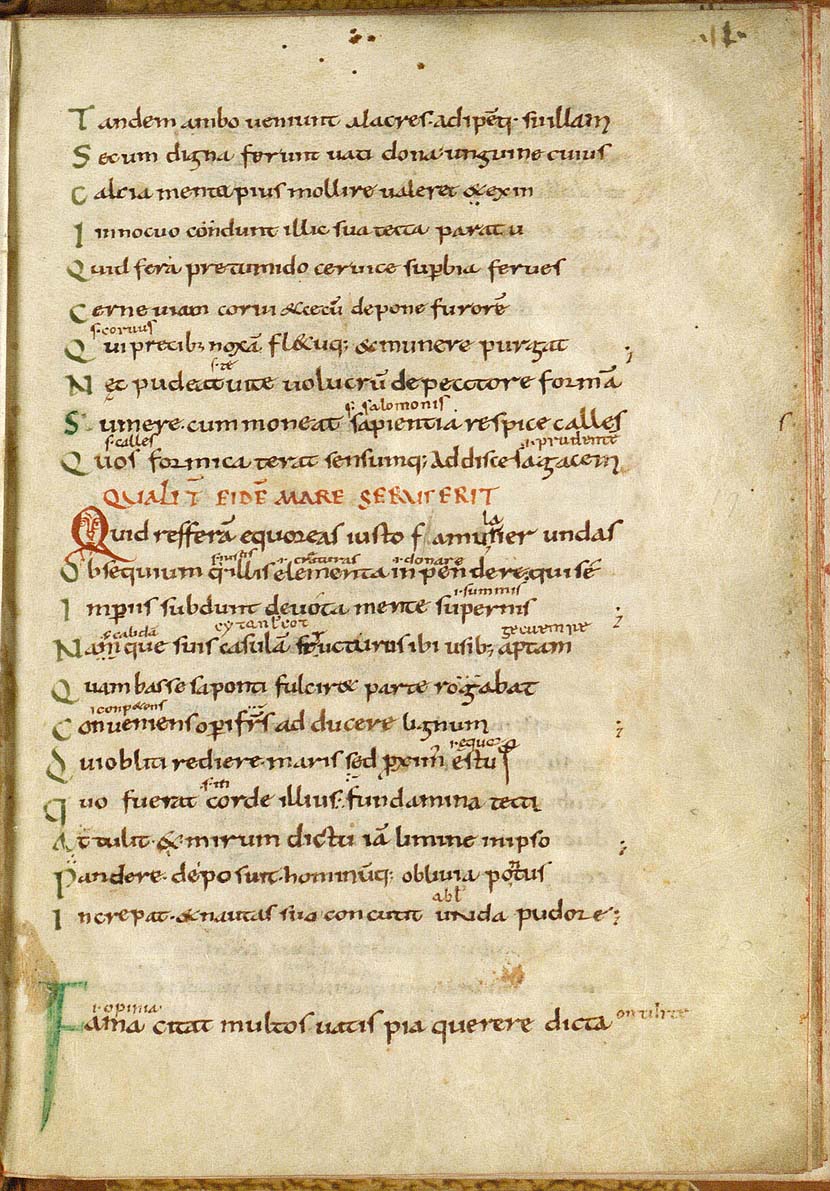 Tandem ambo veniunt alacres· adipēq· suillam
Secum digna ferunt vati dona· unguine cuius
Calcia menta pius mollire valeret &exin
Innocuo condunt illic sua tecta paratu
Quid fera pretumido cervice supbia ferves
Cerne viam corvi &cecū depone furorē
s· corvus
Qui precib; noxā fl&uq; &munere purgat
s· te
Nec pudeat vite volucrū de pecctore formā
s· salomonis
Sumere· cum moneat sapientia respice calles
s· calles i· prudente
Quos formica terat sensumq; Addisce sagacem
QUALIT EIDĒ MARE SERVIERIT
la
Quid refferā equoreas iusto famulier undas
i· creaturas i· donare
Obsequium q illis elementa inpendere· qui sé
i· summis
Imperiis subdunt devota mente supernis
Namque suis casulā structurus ibi usib; aptam
Quam basse saponti fulcir& parte rogabat
Conveniens opifrīs adducere lignum
i· eque
Qui obliti rediere· maris sed pximī estus
s· in
Quo fuerat corde illius· fundamina tecti
Attulit· &mirum dictu iā limine in ipso
Pandere· deposunt· hominūq; oblivia portus
abl
Increpat· &nautas suo concutit unda pudore;
i· opinia
Fama citat multos vatis pia querere dicta